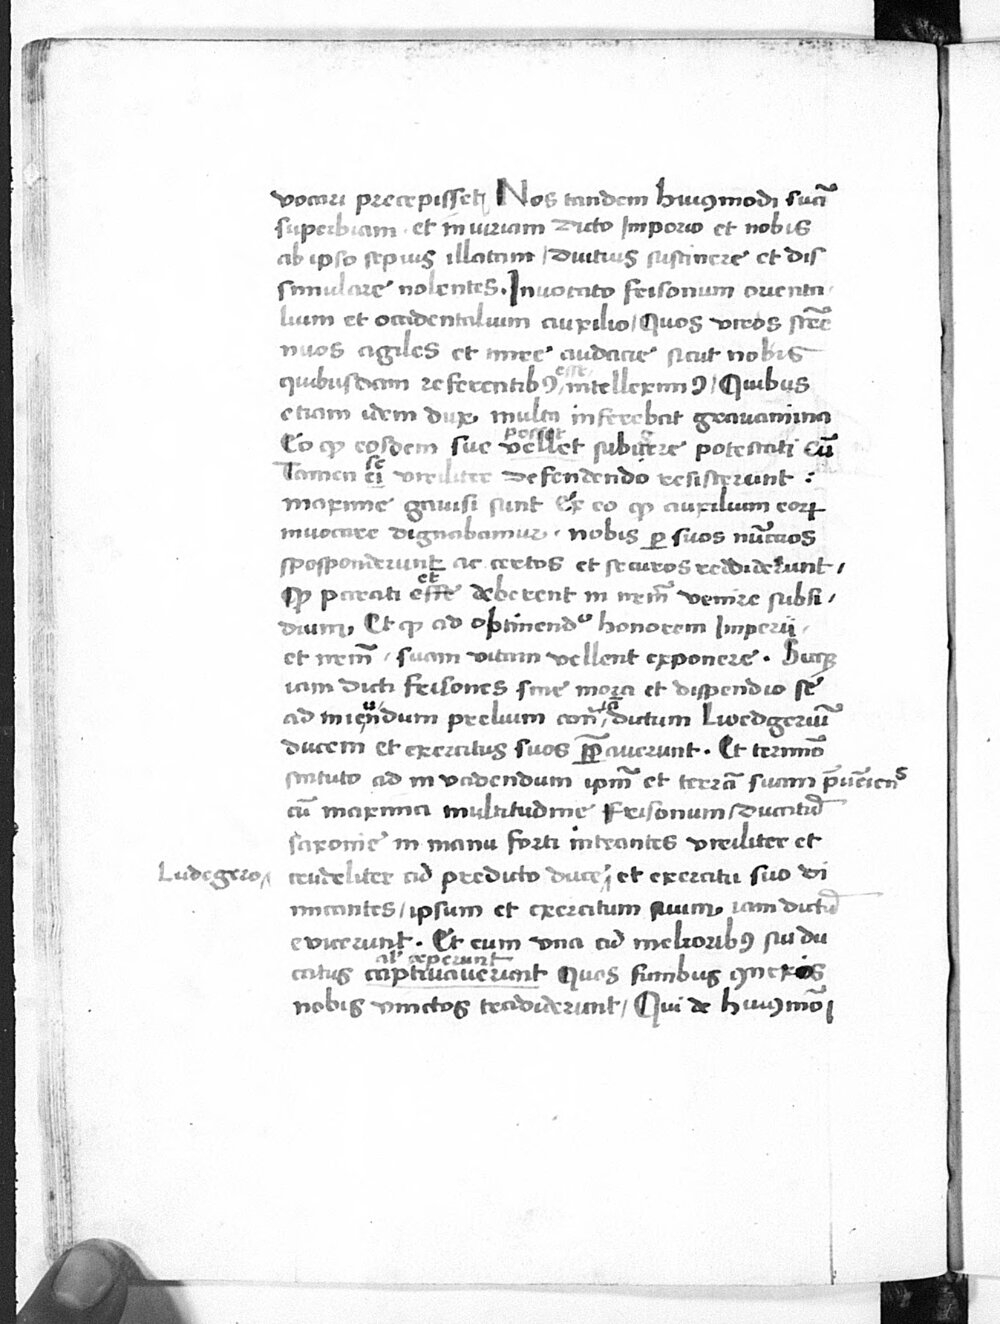 vocari precepisset / Nos tandem huiꝯmodi suā
superbiam . et iniuriam dicto Imperio et nobis
ab ipso sepius illatam / diutius sustinere et dis
simulare nolentes . Inuocato frisonum orienta /
lium et occidentalium auxilio / Quos viros stre
nuos agiles et mire audacie sicut nobis
esse
quibusdam referentibꝯ / intelleximꝯ / Quibus
etiam idem dux multa inferebat grauamina
posset
Eo ꝙ eosdem sue vellet subicere potestati Cū
se
Tamen ei viriliter defendendo resisterunt :
maxime gauisi sunt Ex eo ꝙ auxilium eoꝝ
inuocare dignabamur . nobis ꝑ suos nūcios
sposponderunt ac certos et securos reddiderunt /
et
Qꝙ parati esse deberent in nr̄m venire subsi /
dium / Et ꝙ ad optinendū honorem Imperij /
et nr̄m / suam vitam vellent exponere . Hucqꝫ
iam dicti frisones sine mora et dispendio se
ad miendum prelium con̄ dictum Lwdgerum̄
ducem et exercitus suos p̄pauerunt . Et termīo
statuto ad inuadendum ip̄m et terrā suam p̄uēiens
cū maxima multitudine Frisonum / Ducatū
saxonie in manu forti intrantes viriliter et
Ludegero /
crudeliter cū predicto duce / et exercitu suo di
micantes / ipsum et exercitum suum iam dictū
euicerunt . Et eum vna cū melioribꝯ sui du
al' ceperunt
catus captiuauerunt Quos funibus ꝯnexos
nobis vinctos tradiderunt / Qui de huiꝯmōi